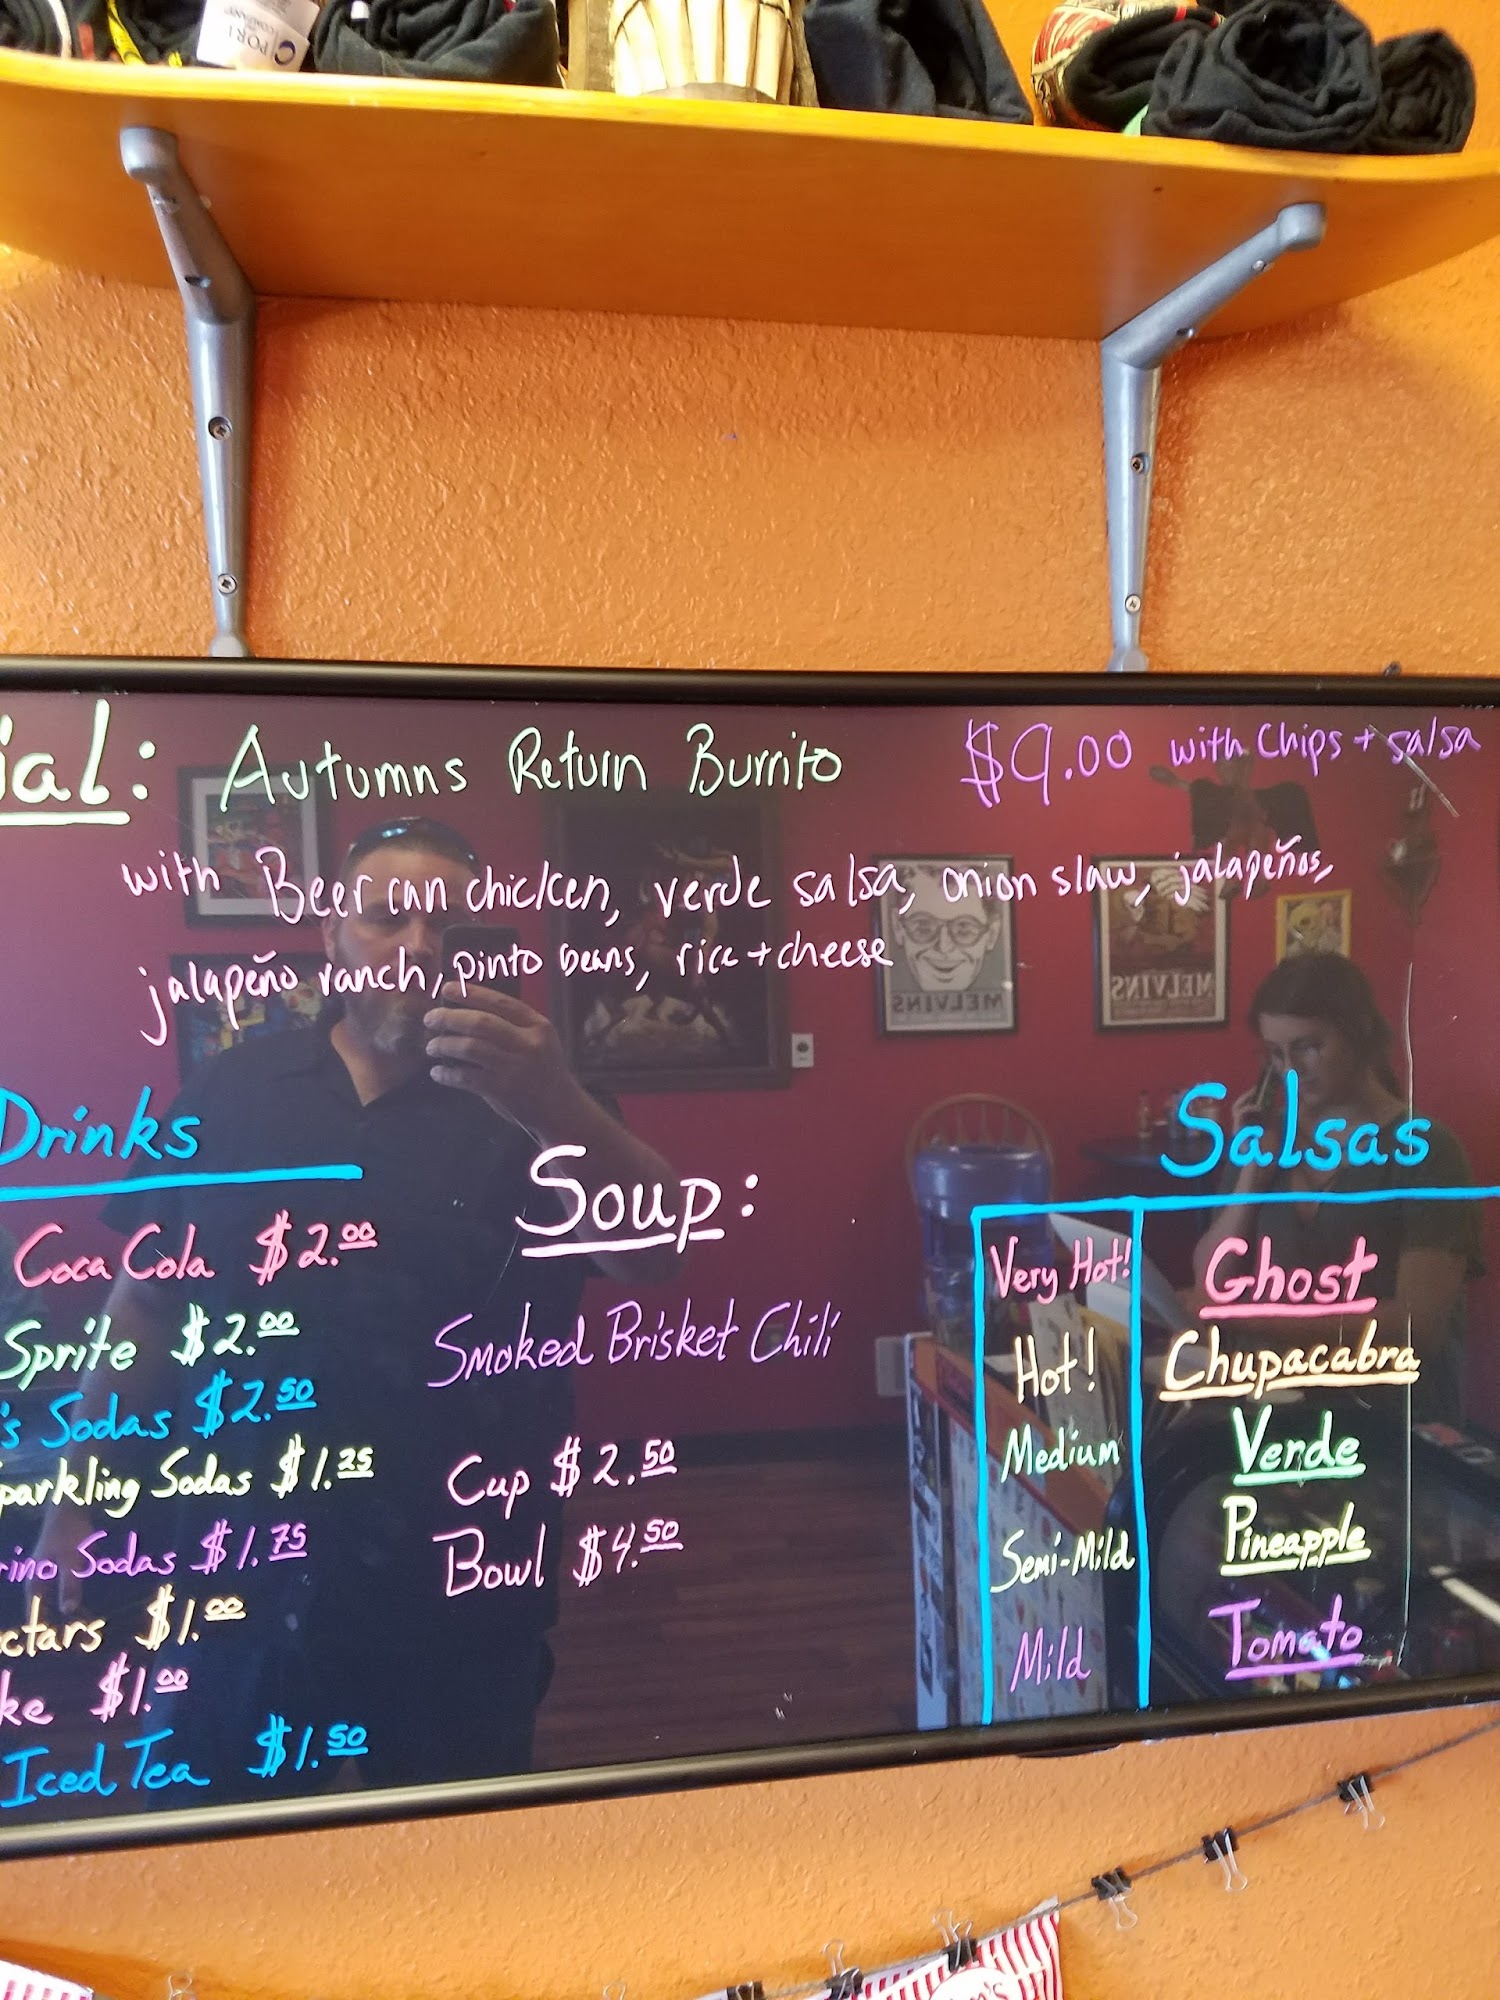 PORT
COMPANY
ial: Autumns Return Burrito $9.00 with Chips + salsa
with Beer can chicken, verde salsa, onion slaw, jalapeños,
jalapeño ranch, pinto beans, rice + cheese
MELVINS
MELVINS
Drinks
Coca Cola $2.00
Sprite $2.00
's Sodas $2.50
parkling Sodas $1.25
rino Sodas $1.75
ctars $1.00
ke $1.00
Iced Tea $1.50
Soup:
Smoked Brisket Chili
Cup $2.50
Bowl $4.50
Salsas
Very Hot! Ghost
Hot! Chupacabra
Medium Verde
Semi-Mild Pineapple
Mild Tomato